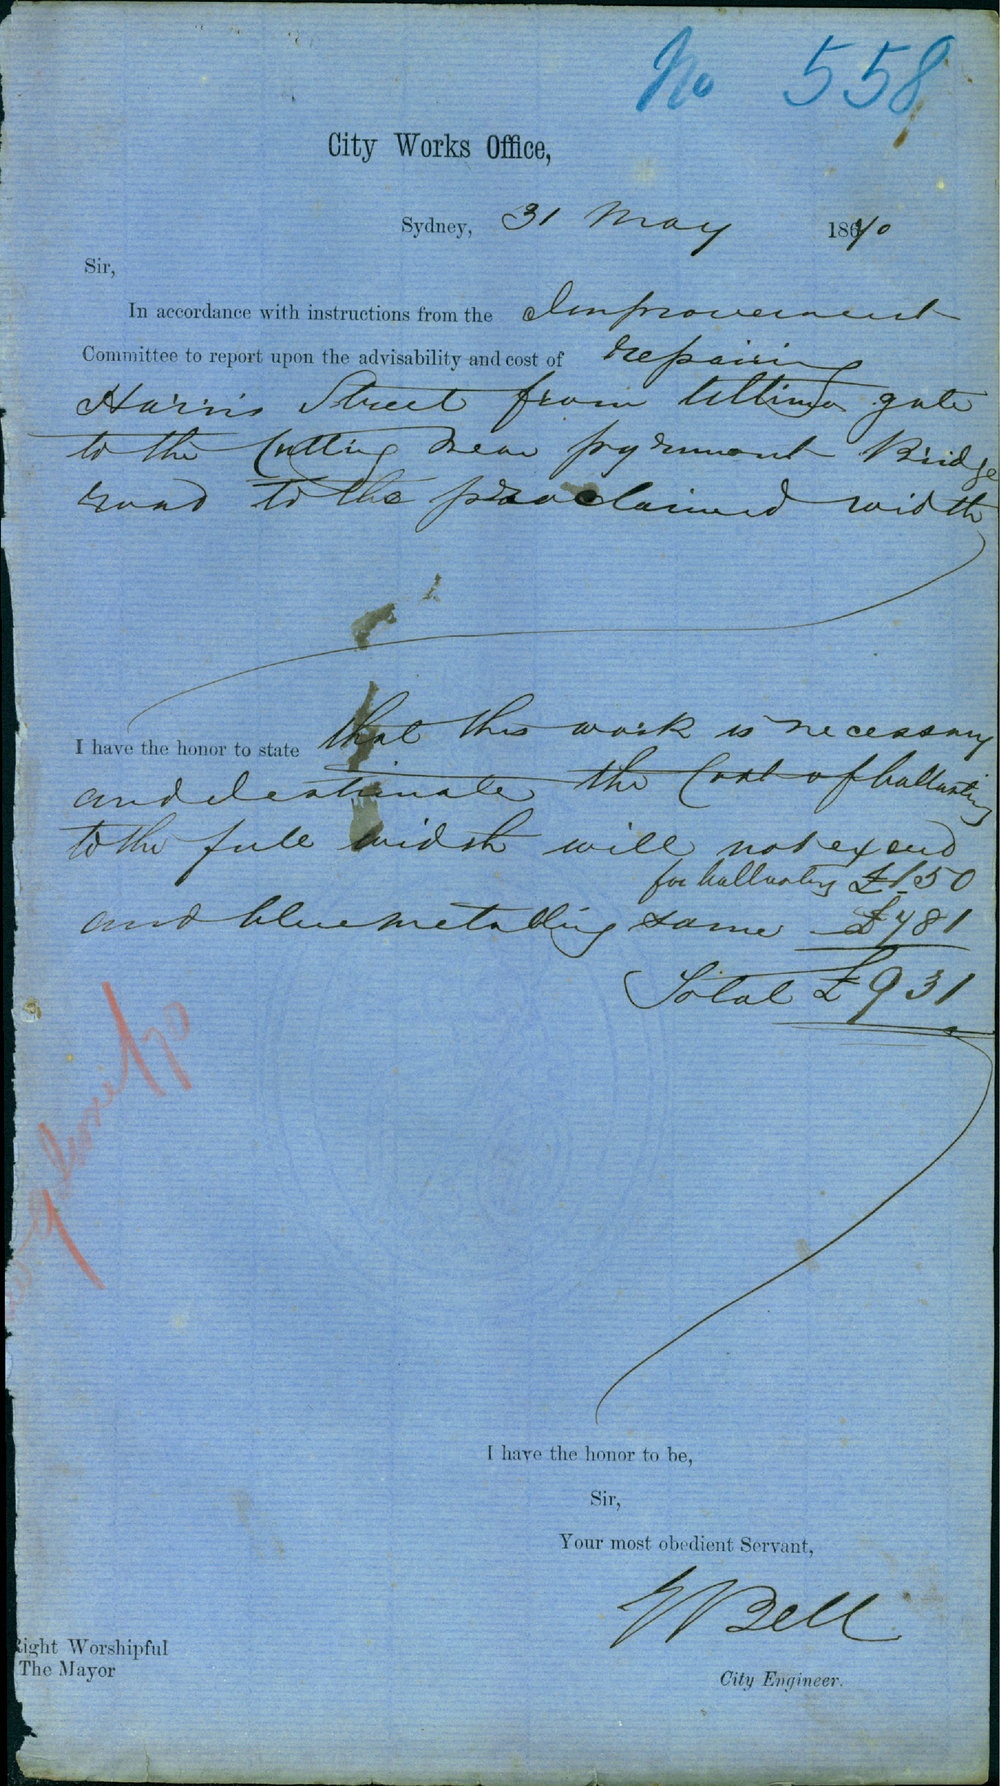 No 558
City Works Office,
Sydney, 31 May 1870
Sir,
In accordance with instructions from the Improvement
Committee to report upon the advisability and cost of repairing
Harris Street from Ultimo gate
to the Cutting near pyrmont Bridge
road to the proclaimed width
I have the honor to state that this work is necessary
and I estimate the Cost of ballasting
to the full width will not exceed
for ballasting £150
and bluemetalling same £781
Total £931
9 June /70
I have the honor to be,
Sir,
Your most obedient Servant,
E Bell
City Engineer.
Right Worshipful
The Mayor